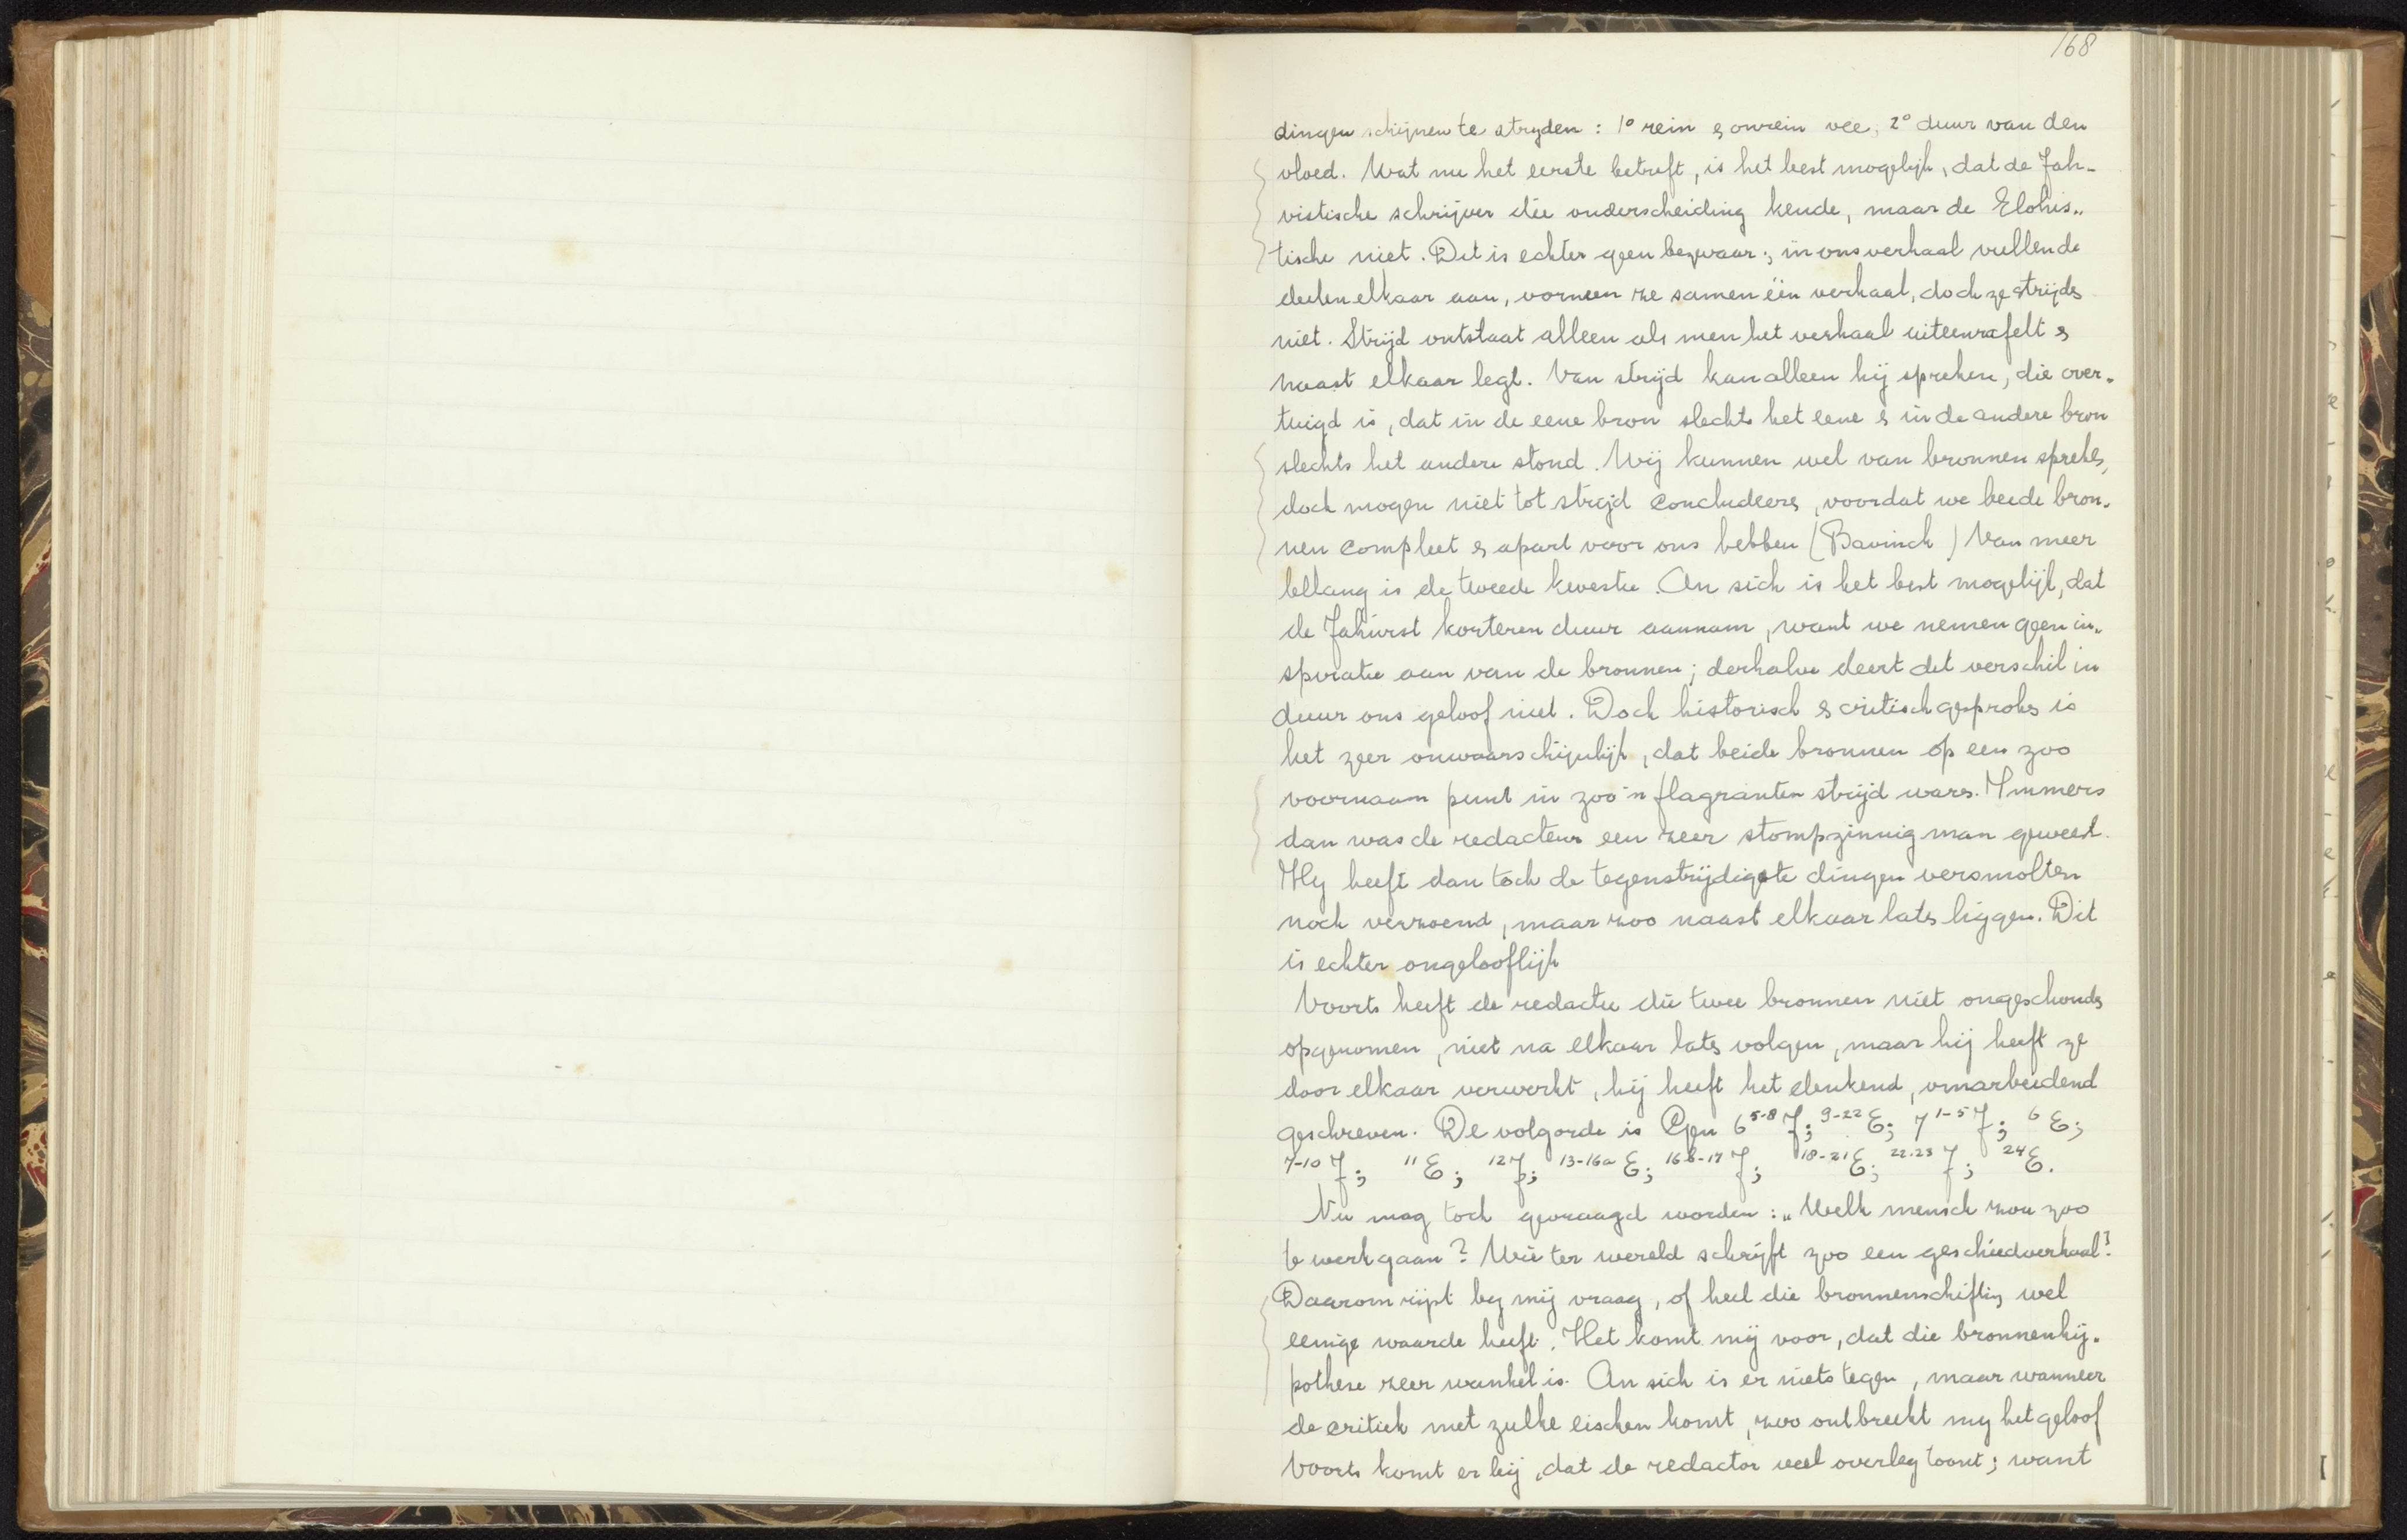 168
dingen schijnen te stryden : 1° rein & onrein vee; 2° duur van den
vloed. Wat nu het eerste betreft, is het best mogelijk, dat de Jah-
vistische schrijver die onderscheiding kende, maar de Elohis„
tische niet. Dit is echter geen bezwaar; in ons verhaal vullen de
deelen elkaar aan, vormen ze samen één verhaal, doch ze strijds
niet. Strijd ontstaat alleen als men het verhaal uiteenrafelt &
naast elkaar legt. Van strijd kan alleen hij spreken, die over-
tuigd is, dat in de eene bron slechts het eene & in de andere bron
slechts het andere stond. Wij kunnen wel van bronnen sprekes,
doch mogen niet tot strijd concludeers, voordat we beide bron-
nen compleet & apart voor ons hebben (Bavinck) Van meer
belang is de tweede kwestie. An sich is het best mogelijk, dat
de Jahvist korteren duur aannam, want we nemen geen in„
spiratie aan van de bronnen; derhalve deert dit verschil in
duur ons geloof niet. Doch historisch & critisch gesprokes is
het zeer onwaarschijnlijk, dat beide bronnen op een zoo
voornaam punt in zoo'n flagranten strijd wares. Immers
dan was de redacteur een zeer stompzinnig man geweest.
Hy heeft dan toch de tegenstrijdigste dingen versmolten
noch verzoend, maar zoo naast elkaar lats liggen. Dit
is echter ongelooflijk
Voorts heeft de redactie die twee bronnen niet ongeschonds
opgenomen, niet na elkaar lats volgen, maar hij heeft ze
door elkaar verwerkt, hij heeft het denkend, omarbeidend
geschreven. De volgorde is Gen 6 5-8 J; 9-22 E; 7 1-5 J; 6 E;
7-10 J; 11 E; 12 J; 13-16a E; 16b-17 J; 18-21 E; 22-23 J; 24 E.
Nu mag toch gevraagd worden : „Welk mensch zou zoo
te werk gaan? Wie ter wereld schrijft zoo een geschiedverhaal?
Daarom rijpt by mij vraag, of heel die bronnenschiftig wel
eenige waarde heeft. Het komt mij voor, dat die bronnenhy-
pothese zeer wankel is. An sich is er niets tegen, maar wanneer
de critiek met zulke eischen komt, zoo ontbreekt my het geloof
Voorts komt er bij, dat de redactor veel overleg toont; want